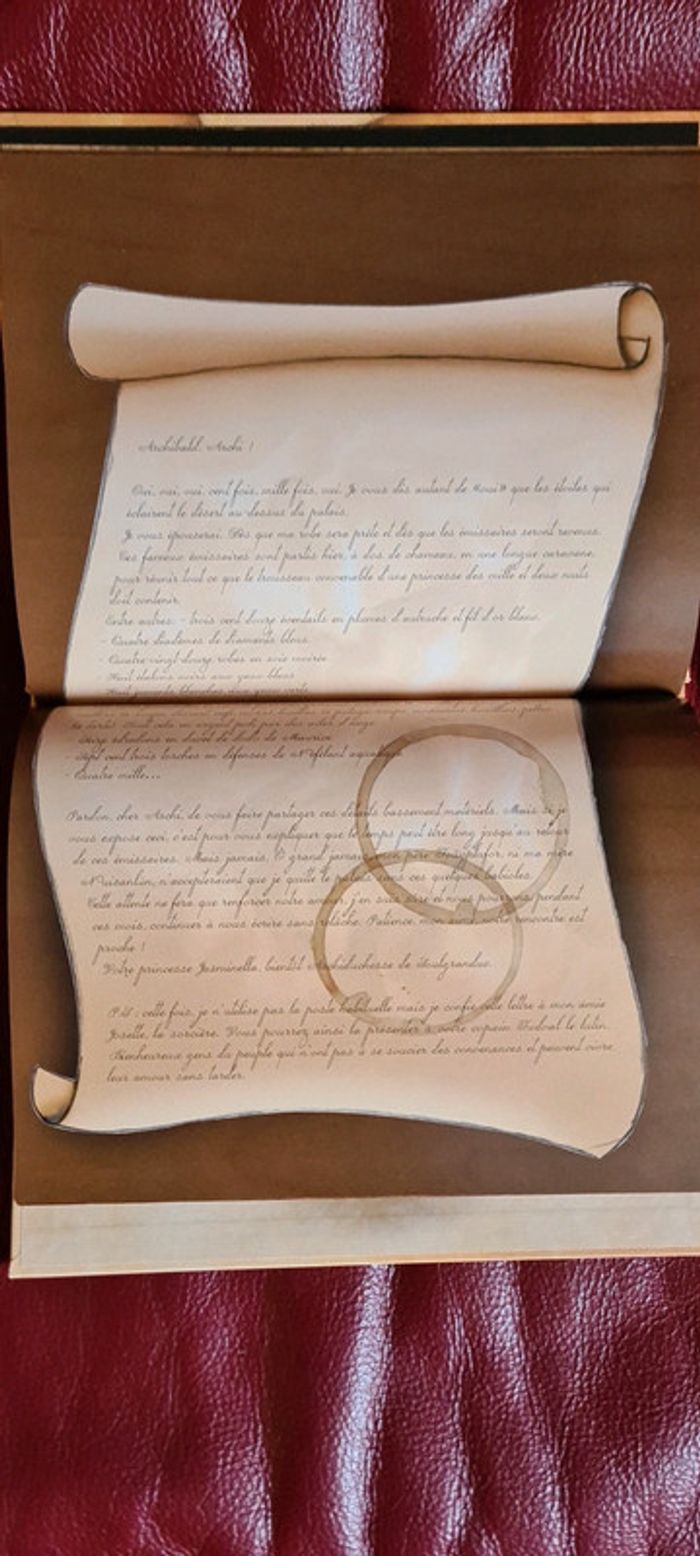 Archibald, Archi !
Oui, oui, oui, cent fois, mille fois, oui. Je vous dis autant de «oui» que les étoiles qui
éclairent le désert au-dessus du palais.
Je vous épouserai. Dès que ma robe sera prête et dès que les émissaires seront revenus.
Ces fameux émissaires sont partis hier, à dos de chameau, en une longue caravane,
pour réunir tout ce que le trousseau convenable d'une princesse des mille et deux nuits
doit contenir.
Entre autres : - trois cent douze éventails en plumes d'autruche et fil d'or blanc.
- Quatre diadèmes de diamants bleus
- Quatre-vingt-douze robes en soie moirée
- Huit étalons noirs aux yeux bleus
- Huit juments blanches aux yeux verts
- Sept cent trois torches en défenses de
- Quatre mille...
Pardon, cher Archi, de vous faire partager ces détails bassement matériels. Mais si je
vous expose ceci, c'est pour vous expliquer que le temps peut être long jusqu'au retour
de ces émissaires. Mais jamais, ô grand jamais mon père ni ma mère
n'accepteraient que je quitte le palais sans ces quelques babioles.
Cette attente ne fera que renforcer notre amour, j'en suis sûre et nous pourrons pendant
ces mois, continuer à nous écrire sans relâche. Patience, mon aimé, notre rencontre est
proche !
Votre princesse Jasminelle, bientôt Archiduchesse de
P.S : cette fois, je n'utilise pas la poste habituelle mais je confie cette lettre à mon amie
Joselle, la sorcière. Vous pourrez ainsi la présenter à votre copain le lutin.
Bienheureux gens du peuple qui n'ont pas à se soucier des convenances et peuvent vivre
leur amour sans tarder.